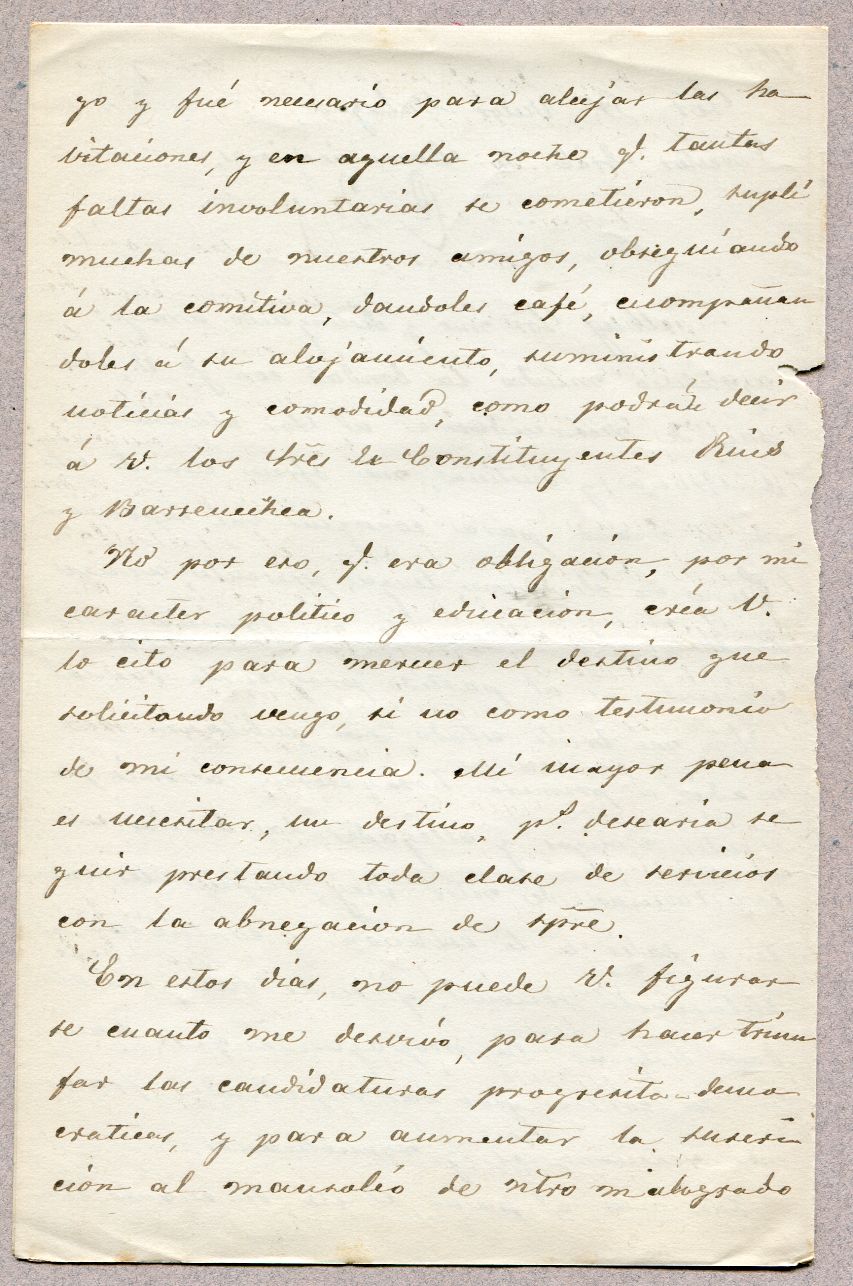 yo y fué necesario para alujar las ha
vitaciones, y en aquella noche q. tantas
faltas involuntarias se cometieron, suplí
muchas de nuestros amigos, obsequiando
á la comitiva, dandoles café, acompañan
doles á su alojamiento, suministrando
noticias y comodidad, como podrán decir
á V. los Sres Ex Constituyentes Ruiz
y Barrenechea.
No por eso, q. era obligación, por mi
caracter politico y educación, créa V.
lo cito para merecer el destino que
solicitando vengo, si no como testimonio
de mi consecuencia. Mi mayor pena
es necesitar, un destino, ps. desearia se
guir prestando toda clase de servicios
con la abnegacion de spre.
En estos dias, no puede V. figurar
se cuanto me desvivo, para hacer triun
far las candidaturas progresita-demo
craticas, y para aumentar la suscri
ción al mausoléo de ntro malogrado